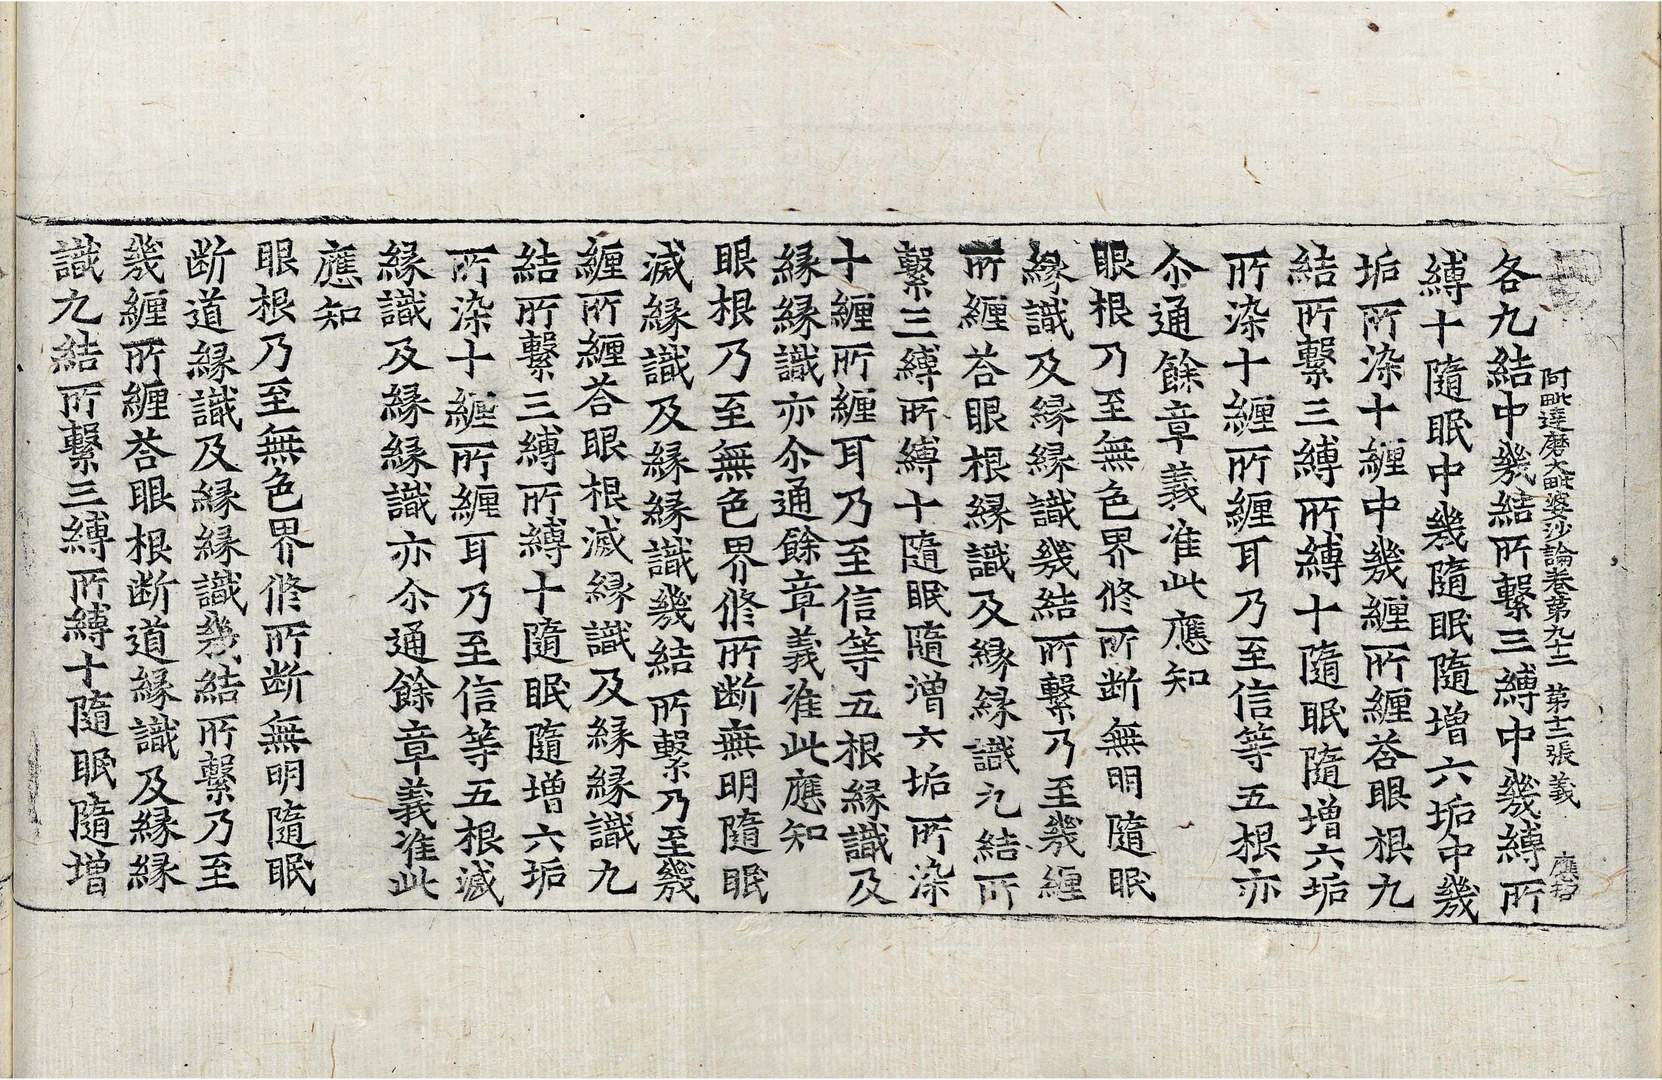 阿毗達磨大毗婆沙論卷第九十二 第十二張 義
各九結中幾結所繫三縛中幾縛所
縛十隨眠中幾隨眠隨增六垢中幾
垢所染十纏中幾纏所纏荅眼根九
結所繫三縛所縛十隨眠隨增六垢
所染十纏所纏耳乃至信等五根亦
尒通餘章義准此應知
眼根乃至無色界修所断無明隨眠
緣識及緣緣識幾結所繫乃至幾纏
所纏荅眼根緣識及緣緣識九結所
繫三縛所縛十隨眠隨增六垢所染
十纏所纏耳乃至信等五根緣識及
緣緣識亦尒通餘章義准此應知
眼根乃至無色界修所断無明隨眠
滅緣識及緣緣識幾結所繫乃至幾
纏所纏荅眼根滅緣識及緣緣識九
結所繫三縛所縛十隨眠隨增六垢
所染十纏所纏耳乃至信等五根滅
緣識及緣緣識亦尒通餘章義准此
應知
眼根乃至無色界修所断無明隨眠
断道緣識及緣緣識幾結所繫乃至
幾纏所纏荅眼根断道緣識及緣緣
識九結所繫三縛所縛十隨眠隨增